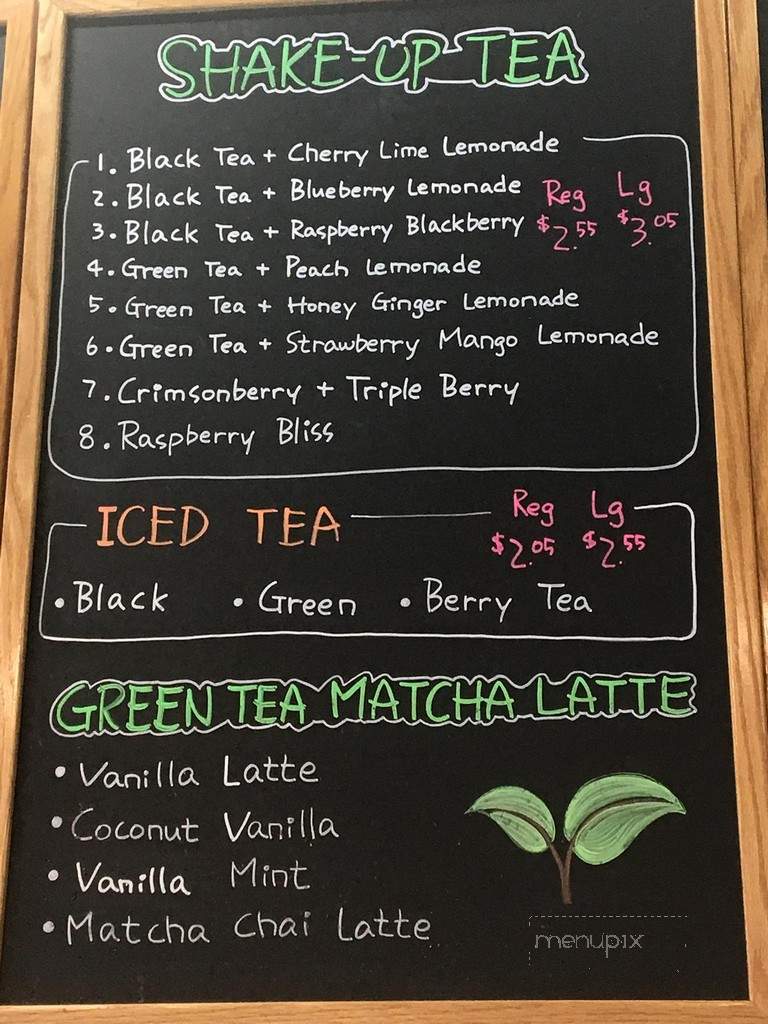 SHAKE-UP TEA
1. Black Tea + Cherry Lime Lemonade
2. Black Tea + Blueberry Lemonade Reg Lg
3. Black Tea + Raspberry Blackberry $2.55 $3.05
4. Green Tea + Peach Lemonade
5. Green Tea + Honey Ginger Lemonade
6. Green Tea + Strawberry Mango Lemonade
7. Crimsonberry + Triple Berry
8. Raspberry Bliss
ICED TEA Reg Lg
$2.05 $2.55
• Black • Green • Berry Tea
GREEN TEA MATCHA LATTE
• Vanilla Latte
• Coconut Vanilla
• Vanilla Mint
• Matcha Chai Latte
menupix